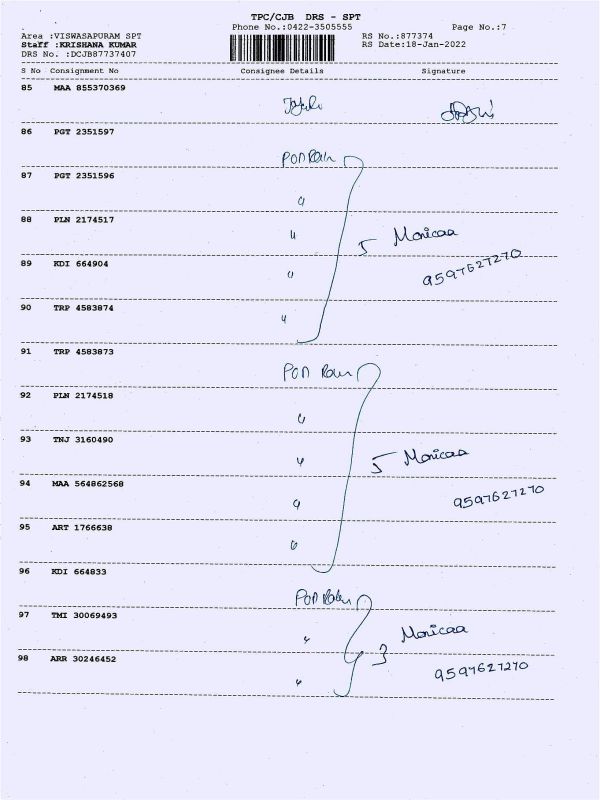 TPC/CJB DRS - SPT
Phone No.:0422-3505555 Page No.:7
Area :VISWASAPURAM SPT RS No.:877374
Staff :KRISHANA KUMAR RS Date:18-Jan-2022
DRS No. :DCJB87737407
S No Consignment No Consignee Details Signature
85 MAA 855370369
86 PGT 2351597
PON Rain
87 PGT 2351596
"
88 PLN 2174517
" 5 Monicaa
89 KDI 664904
" 9597627270
90 TRP 4583874
"
91 TRP 4583873
PON Rain
92 PLN 2174518
"
93 TNJ 3160490
" 5 Monicaa
94 MAA 564862568
" 9597627270
95 ART 1766638
"
96 KDI 664833
PON
97 TMI 30069493
" 3 Monicaa
98 ARR 30246452
" 9597627270